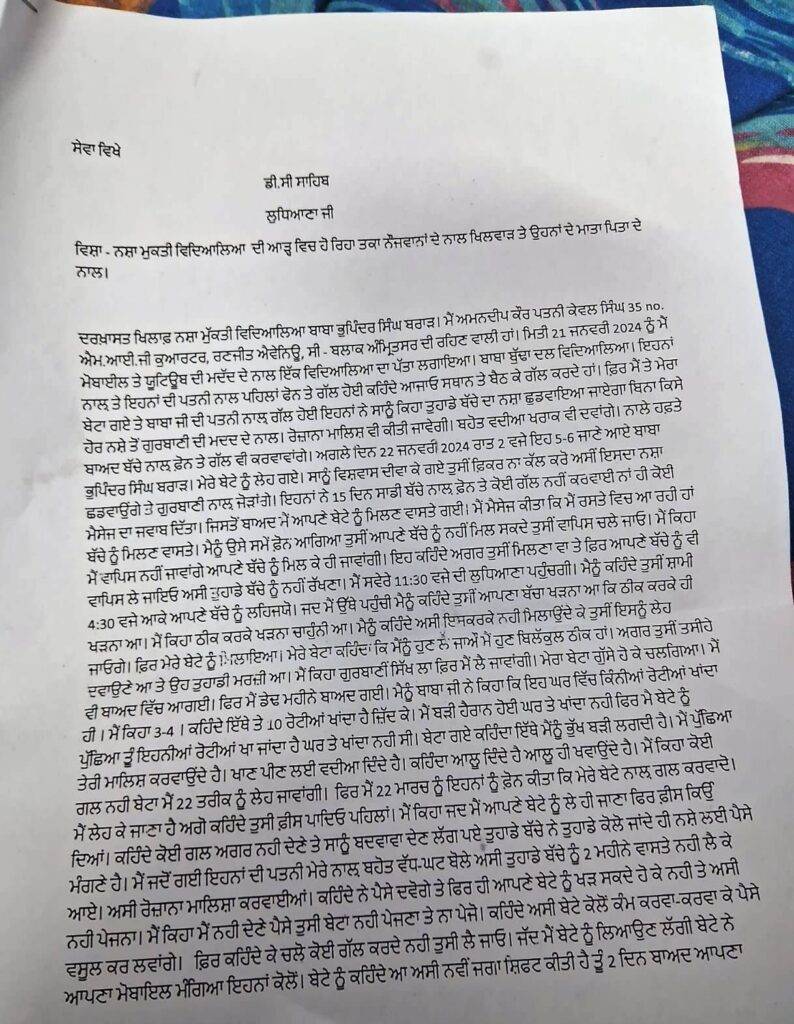 ਸੇਵਾ ਵਿਖੇ
ਡੀ.ਸੀ ਸਾਹਿਬ
ਲੁਧਿਆਣਾ ਜੀ
ਵਿਸ਼ਾ - ਨਸ਼ਾ ਮੁਕਤੀ ਵਿਦਿਆਲਿਆ ਦੀ ਆੜ੍ਹ ਵਿਚ ਹੋ ਰਿਹਾ ਤਕਾ ਨੌਜਵਾਨਾਂ ਦੇ ਨਾਲ ਖਿਲਵਾੜ ਤੇ ਉਹਨਾਂ ਦੇ ਮਾਤਾ ਪਿਤਾ ਦੇ
ਨਾਲ।
ਦਰਖ਼ਾਸਤ ਖਿਲਾਫ਼ ਨਸ਼ਾ ਮੁੱਕਤੀ ਵਿਦਿਆਲਿਆ ਬਾਬਾ ਭੁਪਿੰਦਰ ਸਿੰਘ ਬਰਾੜ। ਮੈਂ ਅਮਨਦੀਪ ਕੌਰ ਪਤਨੀ ਕੇਵਲ ਸਿੰਘ 35 no.
ਐਮ.ਆਈ.ਜੀ ਕੁਆਰਟਰ, ਰਣਜੀਤ ਐਵੇਨਿਊ, ਸੀ - ਬਲਾਕ ਅੰਮ੍ਰਿਤਸਰ ਦੀ ਰਹਿਣ ਵਾਲੀ ਹਾਂ। ਮਿਤੀ 21 ਜਨਵਰੀ 2024 ਨੂੰ ਮੈਂ
ਮੋਬਾਈਲ ਤੇ ਯੂਟਿਊਬ ਦੀ ਮਦੱਦ ਦੇ ਨਾਲ ਇੱਕ ਵਿਦਿਆਲਿਆ ਦਾ ਪੱਤਾ ਲਗਾਇਆ। ਬਾਬਾ ਬੁੱਢਾ ਦਲ ਵਿਦਿਆਲਿਆ। ਇਹਨਾਂ
ਨਾਲ਼ ਤੇ ਇਹਨਾਂ ਦੀ ਪਤਨੀ ਨਾਲ ਪਹਿਲਾਂ ਫੋਨ ਤੇ ਗੱਲ ਹੋਈ ਕਹਿੰਦੇ ਆਜਾਓ ਸਥਾਨ ਤੇ ਬੈਠ ਕੇ ਗੱਲ ਕਰਦੇ ਹਾਂ। ਫ਼ਿਰ ਮੈਂ ਤੇ ਮੇਰਾ
ਬੇਟਾ ਗਏ ਤੇ ਬਾਬਾ ਜੀ ਦੀ ਪਤਨੀ ਨਾਲ਼ ਗੱਲ ਹੋਈ ਇਹਨਾਂ ਨੇ ਸਾਨੂੰ ਕਿਹਾ ਤੁਹਾਡੇ ਬੱਚੇ ਦਾ ਨਸ਼ਾ ਛੁਡਵਾਇਆ ਜਾਏਗਾ ਬਿਨਾ ਕਿਸੇ
ਹੋਰ ਨਸ਼ੇ ਤੋਂ ਗੁਰਬਾਣੀ ਦੀ ਮਦਦ ਦੇ ਨਾਲ। ਰੋਜ਼ਾਨਾ ਮਾਲਿਸ਼ ਵੀ ਕੀਤੀ ਜਾਵੇਗੀ। ਬਹੋਤ ਵਦੀਆ ਖਰਾਕ ਵੀ ਦਵਾਂਗੇ। ਨਾਲੇ ਹਫ਼ਤੇ
ਬਾਅਦ ਬੱਚੇ ਨਾਲ਼ ਫ਼ੋਨ ਤੇ ਗੱਲ ਵੀ ਕਰਵਾਵਾਂਗੇ। ਅਗਲੇ ਦਿਨ 22 ਜਨਵਰੀ 2024 ਰਾਤ 2 ਵਜੇ ਇਹ 5-6 ਜਾਣੇ ਆਏ ਬਾਬਾ
ਭੁਪਿੰਦਰ ਸਿੰਘ ਬਰਾੜ। ਮੇਰੇ ਬੇਟੇ ਨੂੰ ਲੇਹ ਗਏ। ਸਾਨੂੰ ਵਿਸ਼ਵਾਸ ਦੀਵਾ ਕੇ ਗਏ ਤੁਸੀਂ ਫ਼ਿਕਰ ਨਾ ਕੱਲ ਕਰੋ ਅਸੀਂ ਇਸਦਾ ਨਸ਼ਾ
ਛਡਵਾਉਂਗੇ ਤੇ ਗੁਰਬਾਣੀ ਨਾਲ਼ ਜੋੜਾਂਗੇ। ਇਹਨਾਂ ਨੇ 15 ਦਿਨ ਸਾਡੀ ਬੱਚੇ ਨਾਲ਼ ਫ਼ੋਨ ਤੇ ਕੋਈ ਗੱਲ ਨਹੀਂ ਕਰਵਾਈ ਨਾਂ ਹੀ ਕੋਈ
ਮੈਸੇਜ ਦਾ ਜਵਾਬ ਦਿੱਤਾ। ਜਿਸਤੋਂ ਬਾਅਦ ਮੈਂ ਆਪਣੇ ਬੇਟੇ ਨੂੰ ਮਿਲਣ ਵਾਸਤੇ ਗਈ। ਮੈਂ ਮੈਸੇਜ ਕੀਤਾ ਕਿ ਮੈਂ ਰਸਤੇ ਵਿਚ ਆ ਰਹੀ ਹਾਂ
ਬੱਚੇ ਨੂੰ ਮਿਲਣ ਵਾਸਤੇ। ਮੈਨੂੰ ਉਸੇ ਸਮੇਂ ਫ਼ੋਨ ਆਗਿਆ ਤੁਸੀਂ ਆਪਣੇ ਬੱਚੇ ਨੂੰ ਨਹੀਂ ਮਿਲ ਸਕਦੇ ਤੁਸੀਂ ਵਾਪਿਸ ਚਲੇ ਜਾਓ। ਮੈਂ ਕਿਹਾ
ਮੈਂ ਵਾਪਿਸ ਨਹੀਂ ਜਾਵਾਂਗੇ ਆਪਣੇ ਬੱਚੇ ਨੂੰ ਮਿਲ ਕੇ ਹੀ ਜਾਵਾਂਗੀ। ਇਹ ਕਹਿੰਦੇ ਅਗਰ ਤੁਸੀਂ ਮਿਲਣਾ ਵਾ ਤੇ ਫ਼ਿਰ ਆਪਣੇ ਬੱਚੇ ਨੂੰ ਵੀ
ਵਾਪਿਸ ਲੇ ਜਾਇਓ ਅਸੀ ਤੁਹਾਡੇ ਬੱਚੇ ਨੂੰ ਨਹੀਂ ਰੱਖਣਾ। ਮੈਂ ਸਵੇਰੇ 11:30 ਵਜੇ ਦੀ ਲੁਧਿਆਣਾ ਪਹੁੰਚਗੀ। ਮੈਨੂੰ ਕਹਿੰਦੇ ਤੁਸੀਂ ਸ਼ਾਮੀ
4:30 ਵਜੇ ਆਕੇ ਆਪਣੇ ਬੱਚੇ ਨੂੰ ਲਹਿਜਯੋ। ਜਦ ਮੈਂ ਉੱਥੇ ਪਹੁੰਚੀ ਮੈਨੂੰ ਕਹਿੰਦੇ ਤੁਸੀਂ ਆਪਣਾ ਬੱਚਾ ਖੜਨਾ ਆ ਕਿ ਠੀਕ ਕਰਕੇ ਹੀ
ਖੜਨਾ ਆ। ਮੈਂ ਕਿਹਾ ਠੀਕ ਕਰਕੇ ਖੜਨਾ ਚਾਹੁੰਨੀ ਆ। ਮੈਨੂੰ ਕਹਿੰਦੇ ਅਸੀਂ ਇਸਕਰਕੇ ਨਹੀ ਮਿਲਾਉਂਦੇ ਕੇ ਤੁਸੀਂ ਇਸਨੂੰ ਲੇਹ
ਜਾਓਗੇ। ਫ਼ਿਰ ਮੇਰੇ ਬੇਟੇ ਨੂੰ ਮਿਲਾਇਆ। ਮੇਰਾ ਬੇਟਾ ਕਹਿੰਦਾ ਕਿ ਮੈਨੂੰ ਹੁਣ ਲੈ ਜਾਓ ਮੈਂ ਹੁਣ ਬਿਲੱਕੁਲ ਠੀਕ ਹਾਂ। ਅਗਰ ਤੁਸੀਂ ਤਸੀਹੇ
ਦਵਾਉਣੇ ਆ ਤੇ ਉਹ ਤੁਹਾਡੀ ਮਰਜ਼ੀ ਆ। ਮੈਂ ਕਿਹਾ ਗੁਰਬਾਣੀਂ ਸਿੱਖ ਲਾ ਫ਼ਿਰ ਮੈਂ ਲੈ ਜਾਵਾਂਗੀ। ਮੇਰਾ ਬੇਟਾ ਗੁੱਸੇ ਹੋ ਕੇ ਚਲਗਿਆ। ਮੈਂ
ਵੀ ਬਾਅਦ ਵਿੱਚ ਆਗਈ। ਫਿਰ ਮੈਂ ਡੇਢ ਮਹੀਨੇ ਬਾਅਦ ਗਈ। ਮੈਨੂੰ ਬਾਬਾ ਜੀ ਨੇ ਕਿਹਾ ਕਿ ਇਹ ਘਰ ਵਿੱਚ ਕਿੰਨੀਆਂ ਰੋਟੀਆਂ ਖਾਂਦਾ
ਹੀ। ਮੈਂ ਕਿਹਾ 3-4 । ਕਹਿੰਦੇ ਇੱਥੇ ਤੇ 10 ਰੋਟੀਆਂ ਖਾਂਦਾ ਹੈ ਜ਼ਿੱਦ ਕੇ। ਮੈਂ ਬੜੀ ਹੈਰਾਨ ਹੋਈ ਘਰ ਤੇ ਖਾਂਦਾ ਨਹੀ ਫਿਰ ਮੈ ਬੇਟੇ ਨੂੰ
ਪੁੱਛਿਆ ਤੂੰ ਇਹਨੀਆਂ ਰੋਟੀਆਂ ਖਾ ਜਾਂਦਾ ਹੈ ਘਰ ਤੇ ਖਾਂਦਾ ਨਹੀ ਸੀ। ਬੇਟਾ ਗਏ ਕਹਿੰਦਾ ਇੱਥੇ ਮੈਨੂੰ ਭੁੱਖ ਬੜੀ ਲਗਦੀ ਹੈ। ਮੈਂ ਪੁੱਛਿਆ
ਤੇਰੀ ਮਾਲਿਸ਼ ਕਰਵਾਉਂਦੇ ਹੈ। ਖਾਣ ਪੀਣ ਲਈ ਵਦੀਆ ਦਿੰਦੇ ਹੈ। ਕਹਿੰਦਾ ਆਲੂ ਦਿੰਦੇ ਹੈ ਆਲੂ ਹੀ ਖਵਾਉਂਦੇ ਹੈ। ਮੈਂ ਕਿਹਾ ਕੋਈ
ਗਲ ਨਹੀ ਬੇਟਾ ਮੈਂ 22 ਤਰੀਕ ਨੂੰ ਲੇਹ ਜਾਵਾਂਗੀ। ਫਿਰ ਮੈਂ 22 ਮਾਰਚ ਨੂੰ ਇਹਨਾਂ ਨੂੰ ਫ਼ੋਨ ਕੀਤਾ ਕਿ ਮੇਰੇ ਬੇਟੇ ਨਾਲ਼ ਗਲ ਕਰਵਾਦੋ।
ਮੈਂ ਲੇਹ ਕੇ ਜਾਣਾ ਹੈ ਅਗੋ ਕਹਿੰਦੇ ਤੁਸੀ ਫ਼ੀਸ ਪਾਦਿਓ ਪਹਿਲਾਂ। ਮੈਂ ਕਿਹਾ ਜਦ ਮੈਂ ਆਪਣੇ ਬੇਟੇ ਨੂੰ ਲੇ ਹੀ ਜਾਣਾ ਫਿਰ ਫ਼ੀਸ ਕਿਉਂ
ਦਿਆਂ। ਕਹਿੰਦੇ ਕੋਈ ਗਲ ਅਗਰ ਨਹੀ ਦੇਣੇ ਤੇ ਸਾਨੂੰ ਬਦਵਾਵਾ ਦੇਣ ਲੱਗ ਪਏ ਤੁਹਾਡੇ ਬੱਚੇ ਨੇ ਤੁਹਾਡੇ ਕੋਲੋ ਜਾਂਦੇ ਹੀ ਨਸ਼ੇ ਲਈ ਪੈਸੇ
ਮੰਗਣੇ ਹੈ। ਮੈਂ ਜਦੋਂ ਗਈ ਇਹਨਾਂ ਦੀ ਪਤਨੀ ਮੇਰੇ ਨਾਲ਼ ਬਹੋਤ ਵੱਧ-ਘਟ ਬੋਲੇ ਅਸੀ ਤੁਹਾਡੇ ਬੱਚੇ ਨੂੰ 2 ਮਹੀਨੇ ਵਾਸਤੇ ਨਹੀ ਲੈ ਕੇ
ਆਏ। ਅਸੀ ਰੋਜ਼ਾਨਾ ਮਾਲਿਸ਼ਾ ਕਰਵਾਈਆਂ। ਕਹਿੰਦੇ ਨੇ ਪੈਸੇ ਦਵੋਗੇ ਤੇ ਫਿਰ ਹੀ ਆਪਣੇ ਬੇਟੇ ਨੂੰ ਖੜ ਸਕਦੇ ਹੋ ਕੇ ਨਹੀ ਤੇ ਅਸੀ
ਨਹੀ ਪੇਜਨਾ। ਮੈਂ ਕਿਹਾ ਮੈਂ ਨਹੀ ਦੇਣੇ ਪੈਸੇ ਤੁਸੀ ਬੇਟਾਂ ਨਹੀ ਪੇਜਣਾ ਤੇ ਨਾ ਪੇਜੋਂ। ਕਹਿੰਦੇ ਅਸੀ ਬੇਟੇ ਕੋਲੋਂ ਕੰਮ ਕਰਵਾ-ਕਰਵਾ ਕੇ ਪੈਸੇ
ਵਸੂਲ ਕਰ ਲਵਾਂਗੇ। ਫ਼ਿਰ ਕਹਿੰਦੇ ਕੇ ਚਲੋ ਕੋਈ ਗੱਲ ਕਰਦੇ ਨਹੀ ਤੁਸੀ ਲੈ ਜਾਓ। ਜੱਦ ਮੈਂ ਬੇਟੇ ਨੂੰ ਲਿਆਉਣ ਲੱਗੀ ਬੇਟੇ ਨੇ
ਆਪਣਾ ਮੋਬਾਇਲ ਮੰਗਿਆ ਇਹਨਾਂ ਕੋਲੋਂ। ਬੇਟੇ ਨੂੰ ਕਹਿੰਦੇ ਆ ਅਸੀ ਨਵੀਂ ਜਗਾ ਸ਼ਿਫਟ ਕੀਤੀ ਹੈ ਤੂੰ 2 ਦਿਨ ਬਾਅਦ ਆਪਣਾ